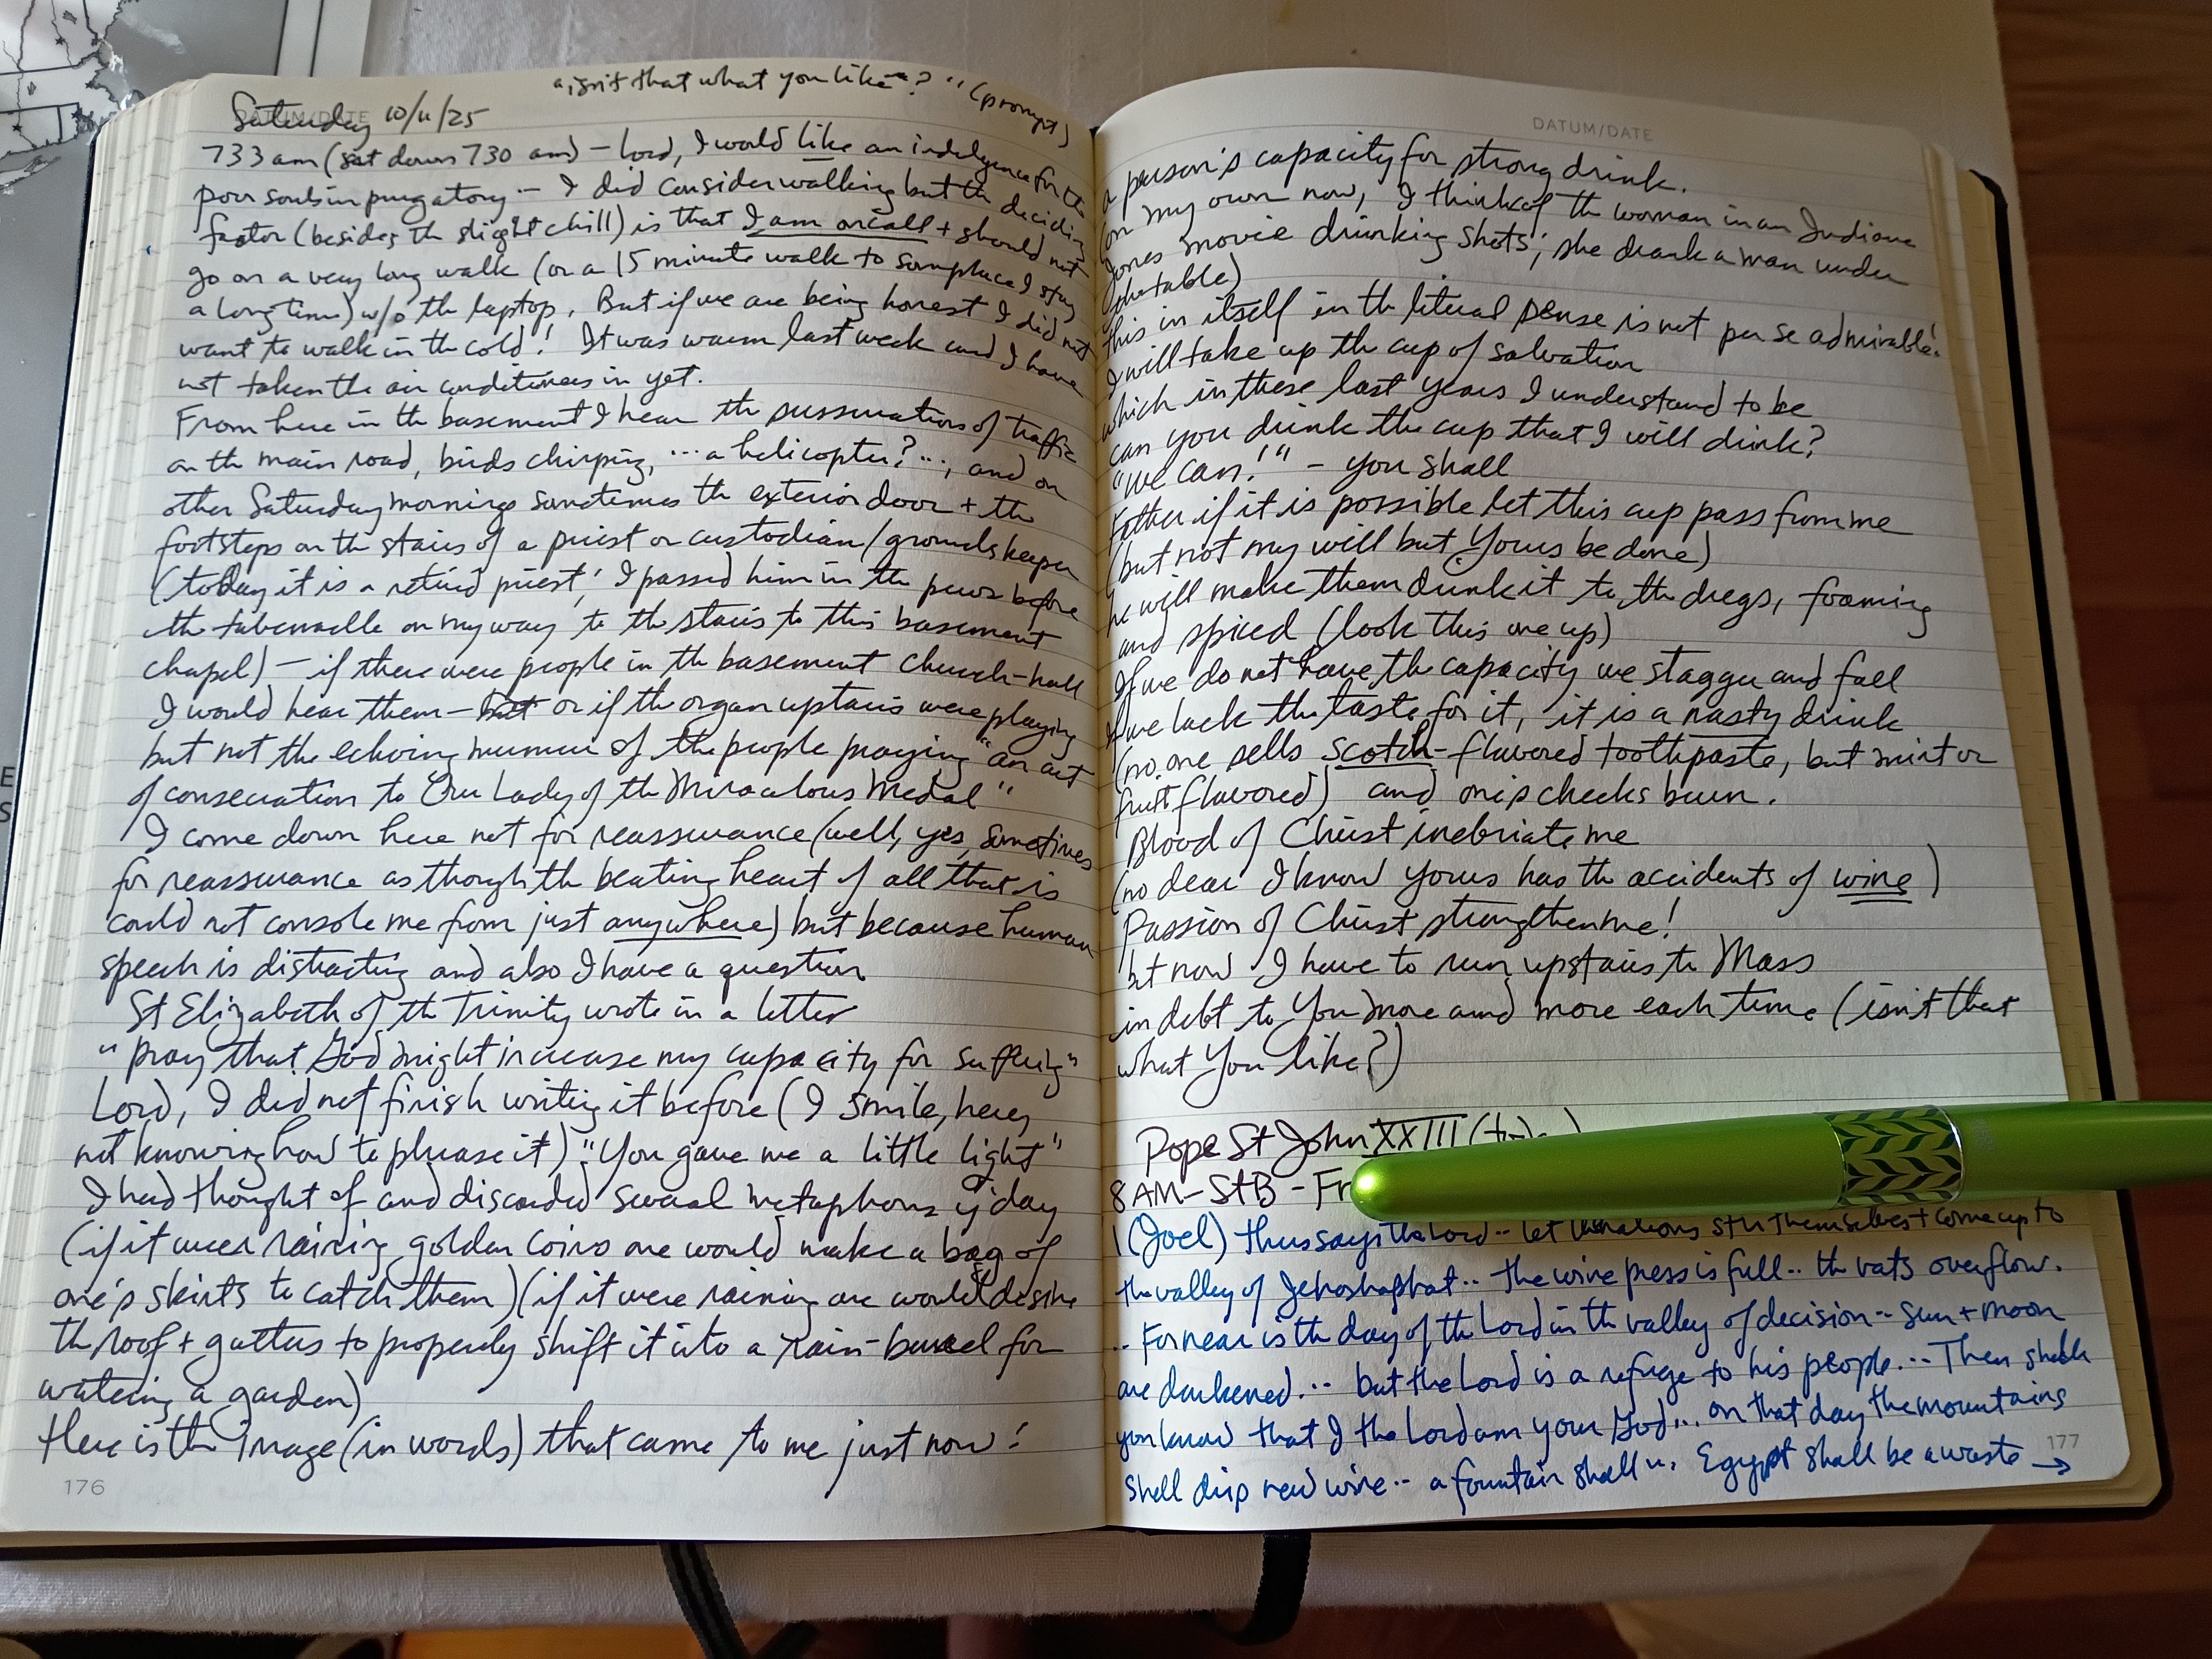 "isn't that what you like"? (prompt)
DATUM/DATE
Saturday 10/11/25
733 am (sat down 730 am) – Lord, I would like an indulgence for the
poor souls in purgatory – I did consider walking but the deciding
factor (besides the slight chill) is that I am oncall + should not
go on a very long walk (or a 15 minute walk to someplace I stay
a long time) w/o the laptop. But if we are being honest I did not
want to walk in the cold! It was warm last week and I have
not taken the air conditioners in yet.
From here in the basement I hear the sussurations of traffic
on the main road, birds chirping, ... a helicopter? ..., and on
other Saturday mornings sometimes the exterior door + the
footsteps on the stairs of a priest or custodian/groundskeeper
(today it is a retired priest; I passed him in the pews before
the tabernacle on my way to the stairs to this basement
chapel) – if there were people in the basement church-hall
I would hear them – but or if the organ upstairs were playing
but not the echoing murmur of the people praying "an act
of consecration to Our Lady of the Miraculous Medal"
I come down here not for reassurance (well, yes, sometimes
for reassurance as though the beating heart of all that is
could not console me from just anywhere) but because human
speech is distracting and also I have a question
St Elizabeth of the Trinity wrote in a letter
"pray that God might increase my capacity for suffering"
Lord, I did not finish writing it before (I smile, here,
not knowing how to phrase it) "You gave me a little light"
I had thought of and discarded several metaphors y'day
(if it were raining golden coins one would make a bag of
one's skirts to catch them) (if it were raining one would desire
the roof + gutters to properly shift it into a rain-barrel for
watering a garden)
Here is the image (in words) that came to me just now:
176
DATUM/DATE
a person's capacity for strong drink.
(on my own now, I think of the woman in an Indiana
Jones movie drinking shots; she drank a man under
the table)
this in itself in the literal sense is not per se admirable!
I will take up the cup of salvation
which in these last years I understand to be
can you drink the cup that I will drink?
"We can!" – you shall
Father if it is possible let this cup pass from me
(but not my will but Yours be done)
he will make them drink it to the dregs, foaming
and spiced (look this one up)
If we do not have the capacity we stagger and fall
If we lack the taste for it, it is a nasty drink
(no one sells scotch-flavored toothpaste, but mint or
fruit flavored) and one's cheeks burn.
Blood of Christ inebriate me
(no dear I know yours has the accidents of wine)
Passion of Christ strengthen me!
but now I have to run upstairs to Mass
in debt to You more and more each time (isn't that
what You like?)
Pope St John XXIII
8 AM – St B – Fr
1 (Joel) thus says the Lord .. let the nations stir themselves + come up to
the valley of Jehoshaphat .. the wine press is full .. the vats overflow.
.. For near is the day of the Lord in the valley of decision .. sun + moon
are darkened ... but the Lord is a refuge to his people ... Then shall
you know that I the Lord am your God ... on that day the mountains
shall drip new wine .. a fountain shall ... Egypt shall be a waste →
177